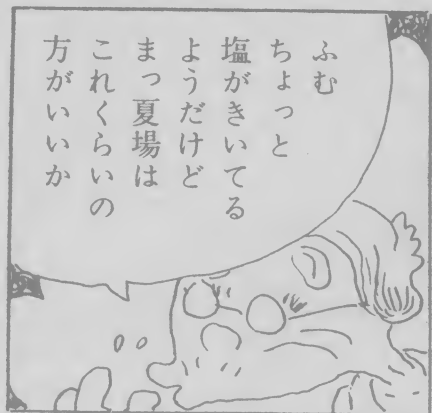 ふむ
ちょっと
塩がきいてる
ようだけど
まっ夏場は
これくらいの
方がいいか